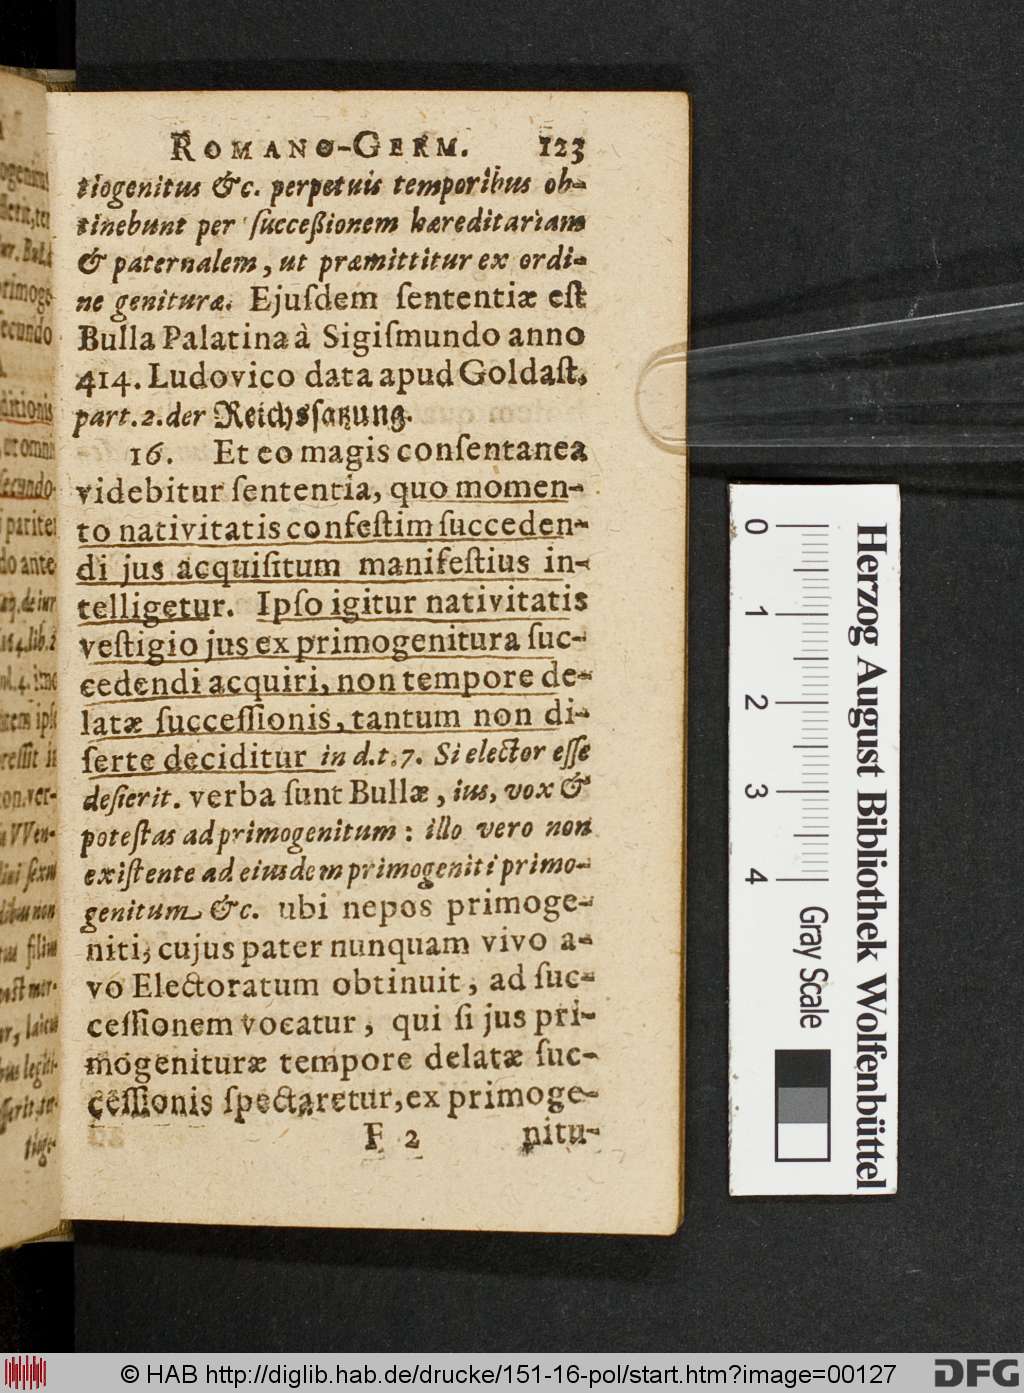 ROMANO-GERM. 123
tiogenitus &c. perpetuis temporibus ob-
tinebunt per ſucceßionem hæreditariam
& paternalem, ut præmittitur ex ordi-
ne genituræ. Ejuſdem ſententiæ eſt
Bulla Palatina à Sigiſmundo anno
414. Ludovico data apud Goldaſt.
part. 2. der Reichsſatzung.
16. Et eo magis conſentanea
videbitur ſententia, quo momen-
to nativitatis confeſtim ſucceden-
di jus acquiſitum manifeſtius in-
telligetur. Ipſo igitur nativitatis
veſtigio jus ex primogenitura ſuc-
cedendi acquiri, non tempore de-
latæ ſucceſſionis, tantum non di-
ſerte deciditur in d.t.7. Si elector eſſe
deſierit. verba ſunt Bullæ, ius, vox &
poteſtas ad primogenitum: illo vero non
exiſtente ad eiusdem primogeniti primo-
genitum &c. ubi nepos primoge-
niti, cujus pater nunquam vivo a-
vo Electoratum obtinuit, ad ſuc-
ceſſionem vocatur, qui ſi jus pri-
mogenituræ tempore delatæ ſuc-
ceſſionis ſpectaretur, ex primoge-
F 2 nitu-
0 1 2 3 4 Gray Scale
Herzog August Bibliothek Wolfenbüttel
© HAB http://diglib.hab.de/drucke/151-16-pol/start.htm?image=00127
DFG